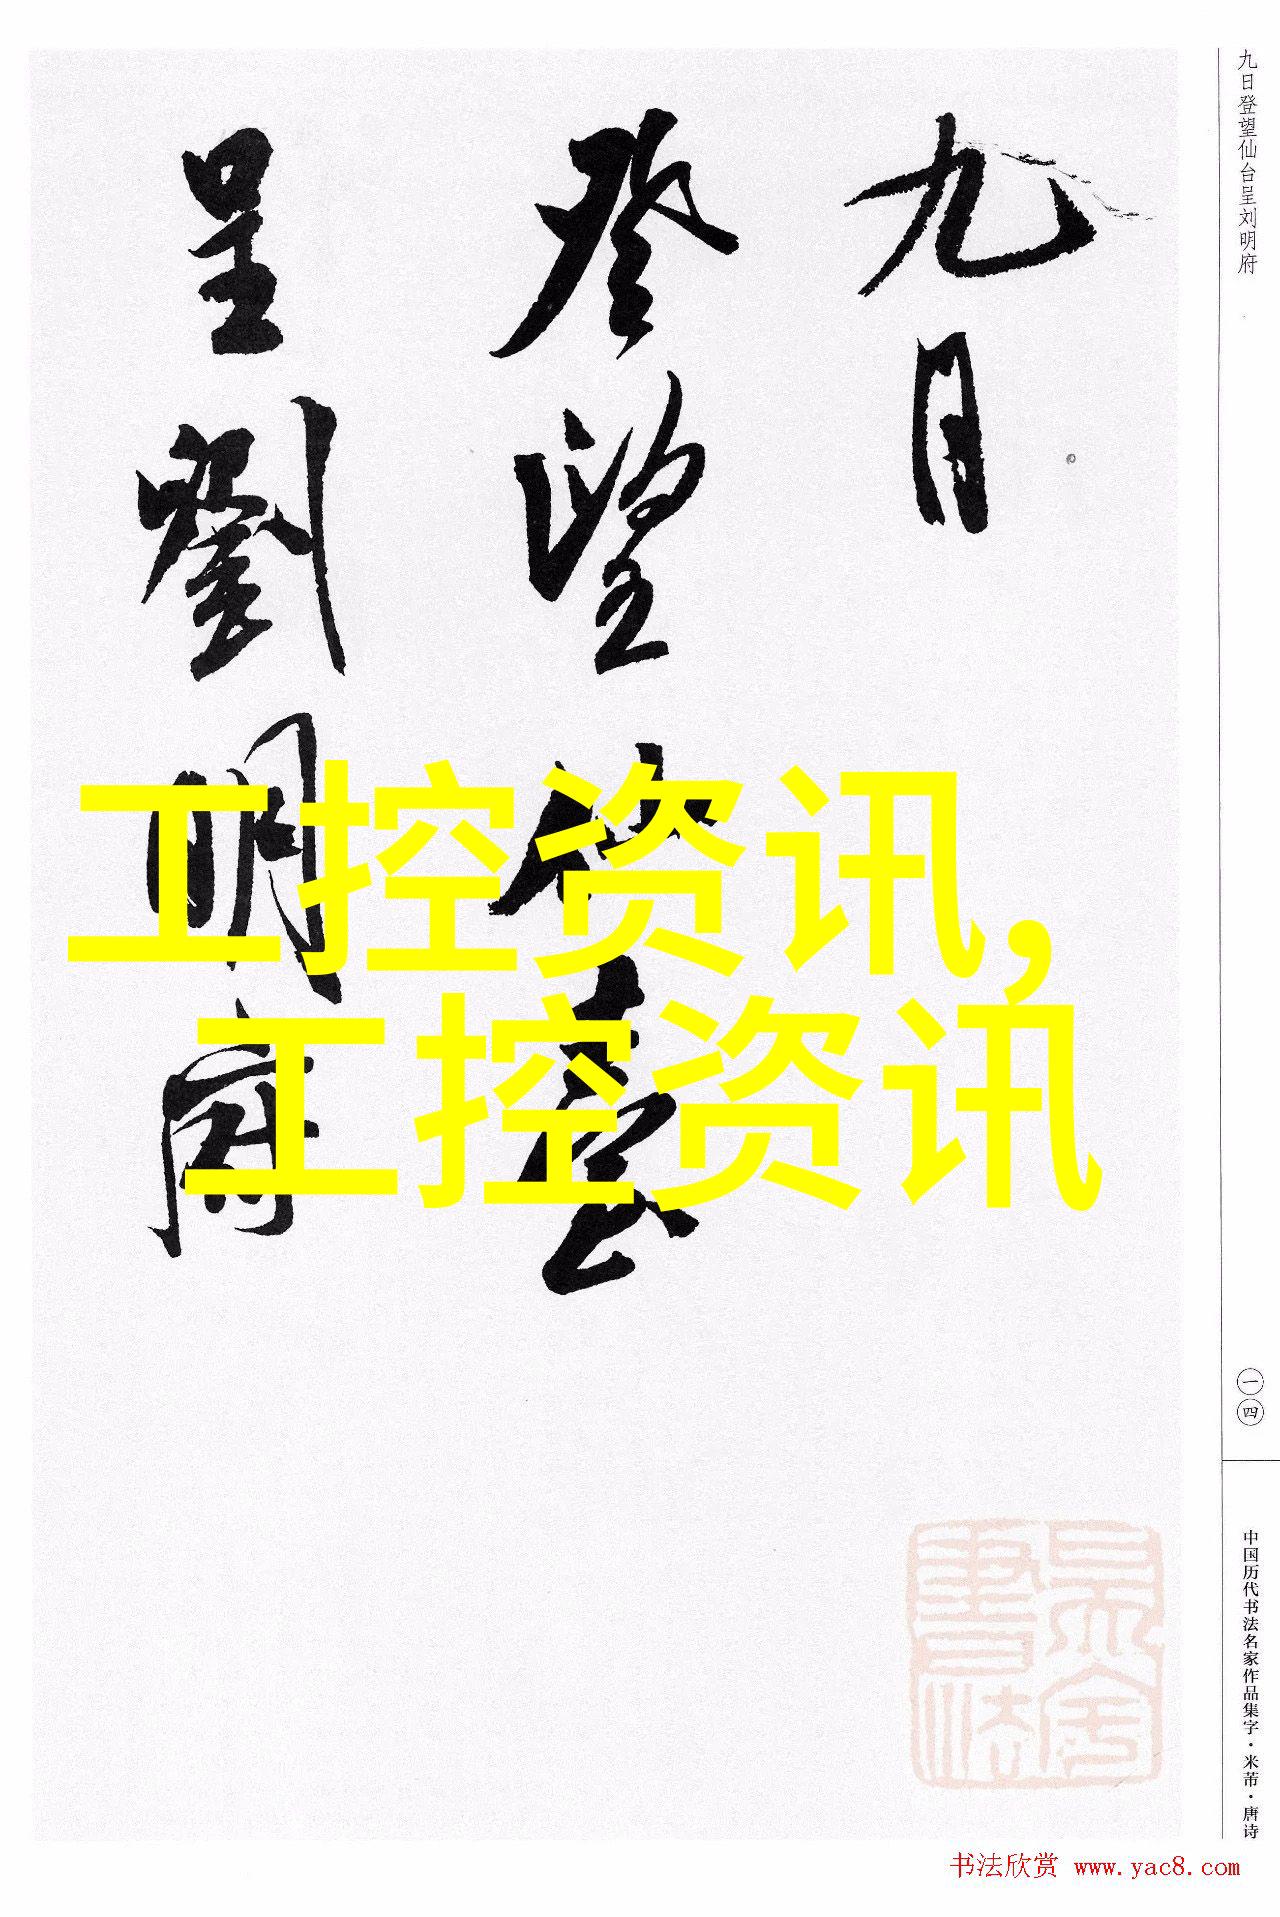 九日
登望仙臺
呈劉明府
工控资讯,
工控资讯
九日登望仙台呈刘明府
一四
中国历代书法名家作品集字·米芾·唐诗
书法欣赏 www.yac8.com